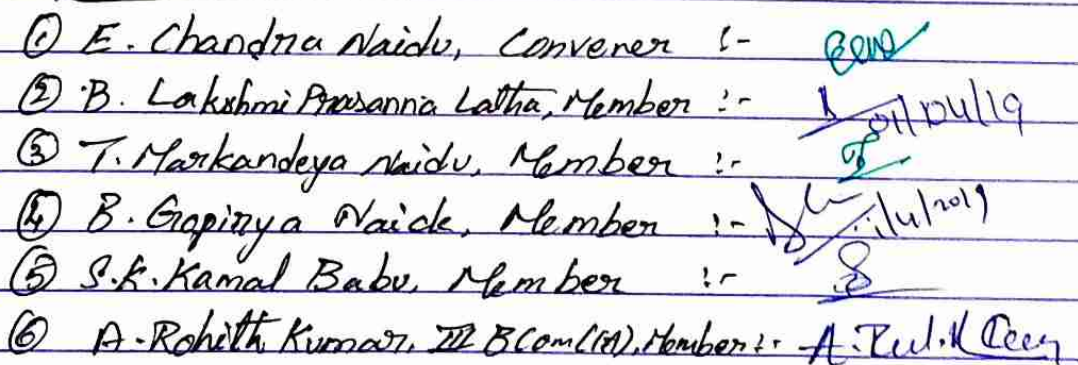 ① E. Chandra Naidu, Convener :-
② B. Lakshmi Prasanna Latha, Member :- 01/04/19
③ T. Markandeya Naidu, Member :-
④ B. Gopinya Naick, Member :- 1/4/2019
⑤ S.K. Kamal Babu, Member :-
⑥ A. Rohith Kumar, III BCom(CA), Member :-